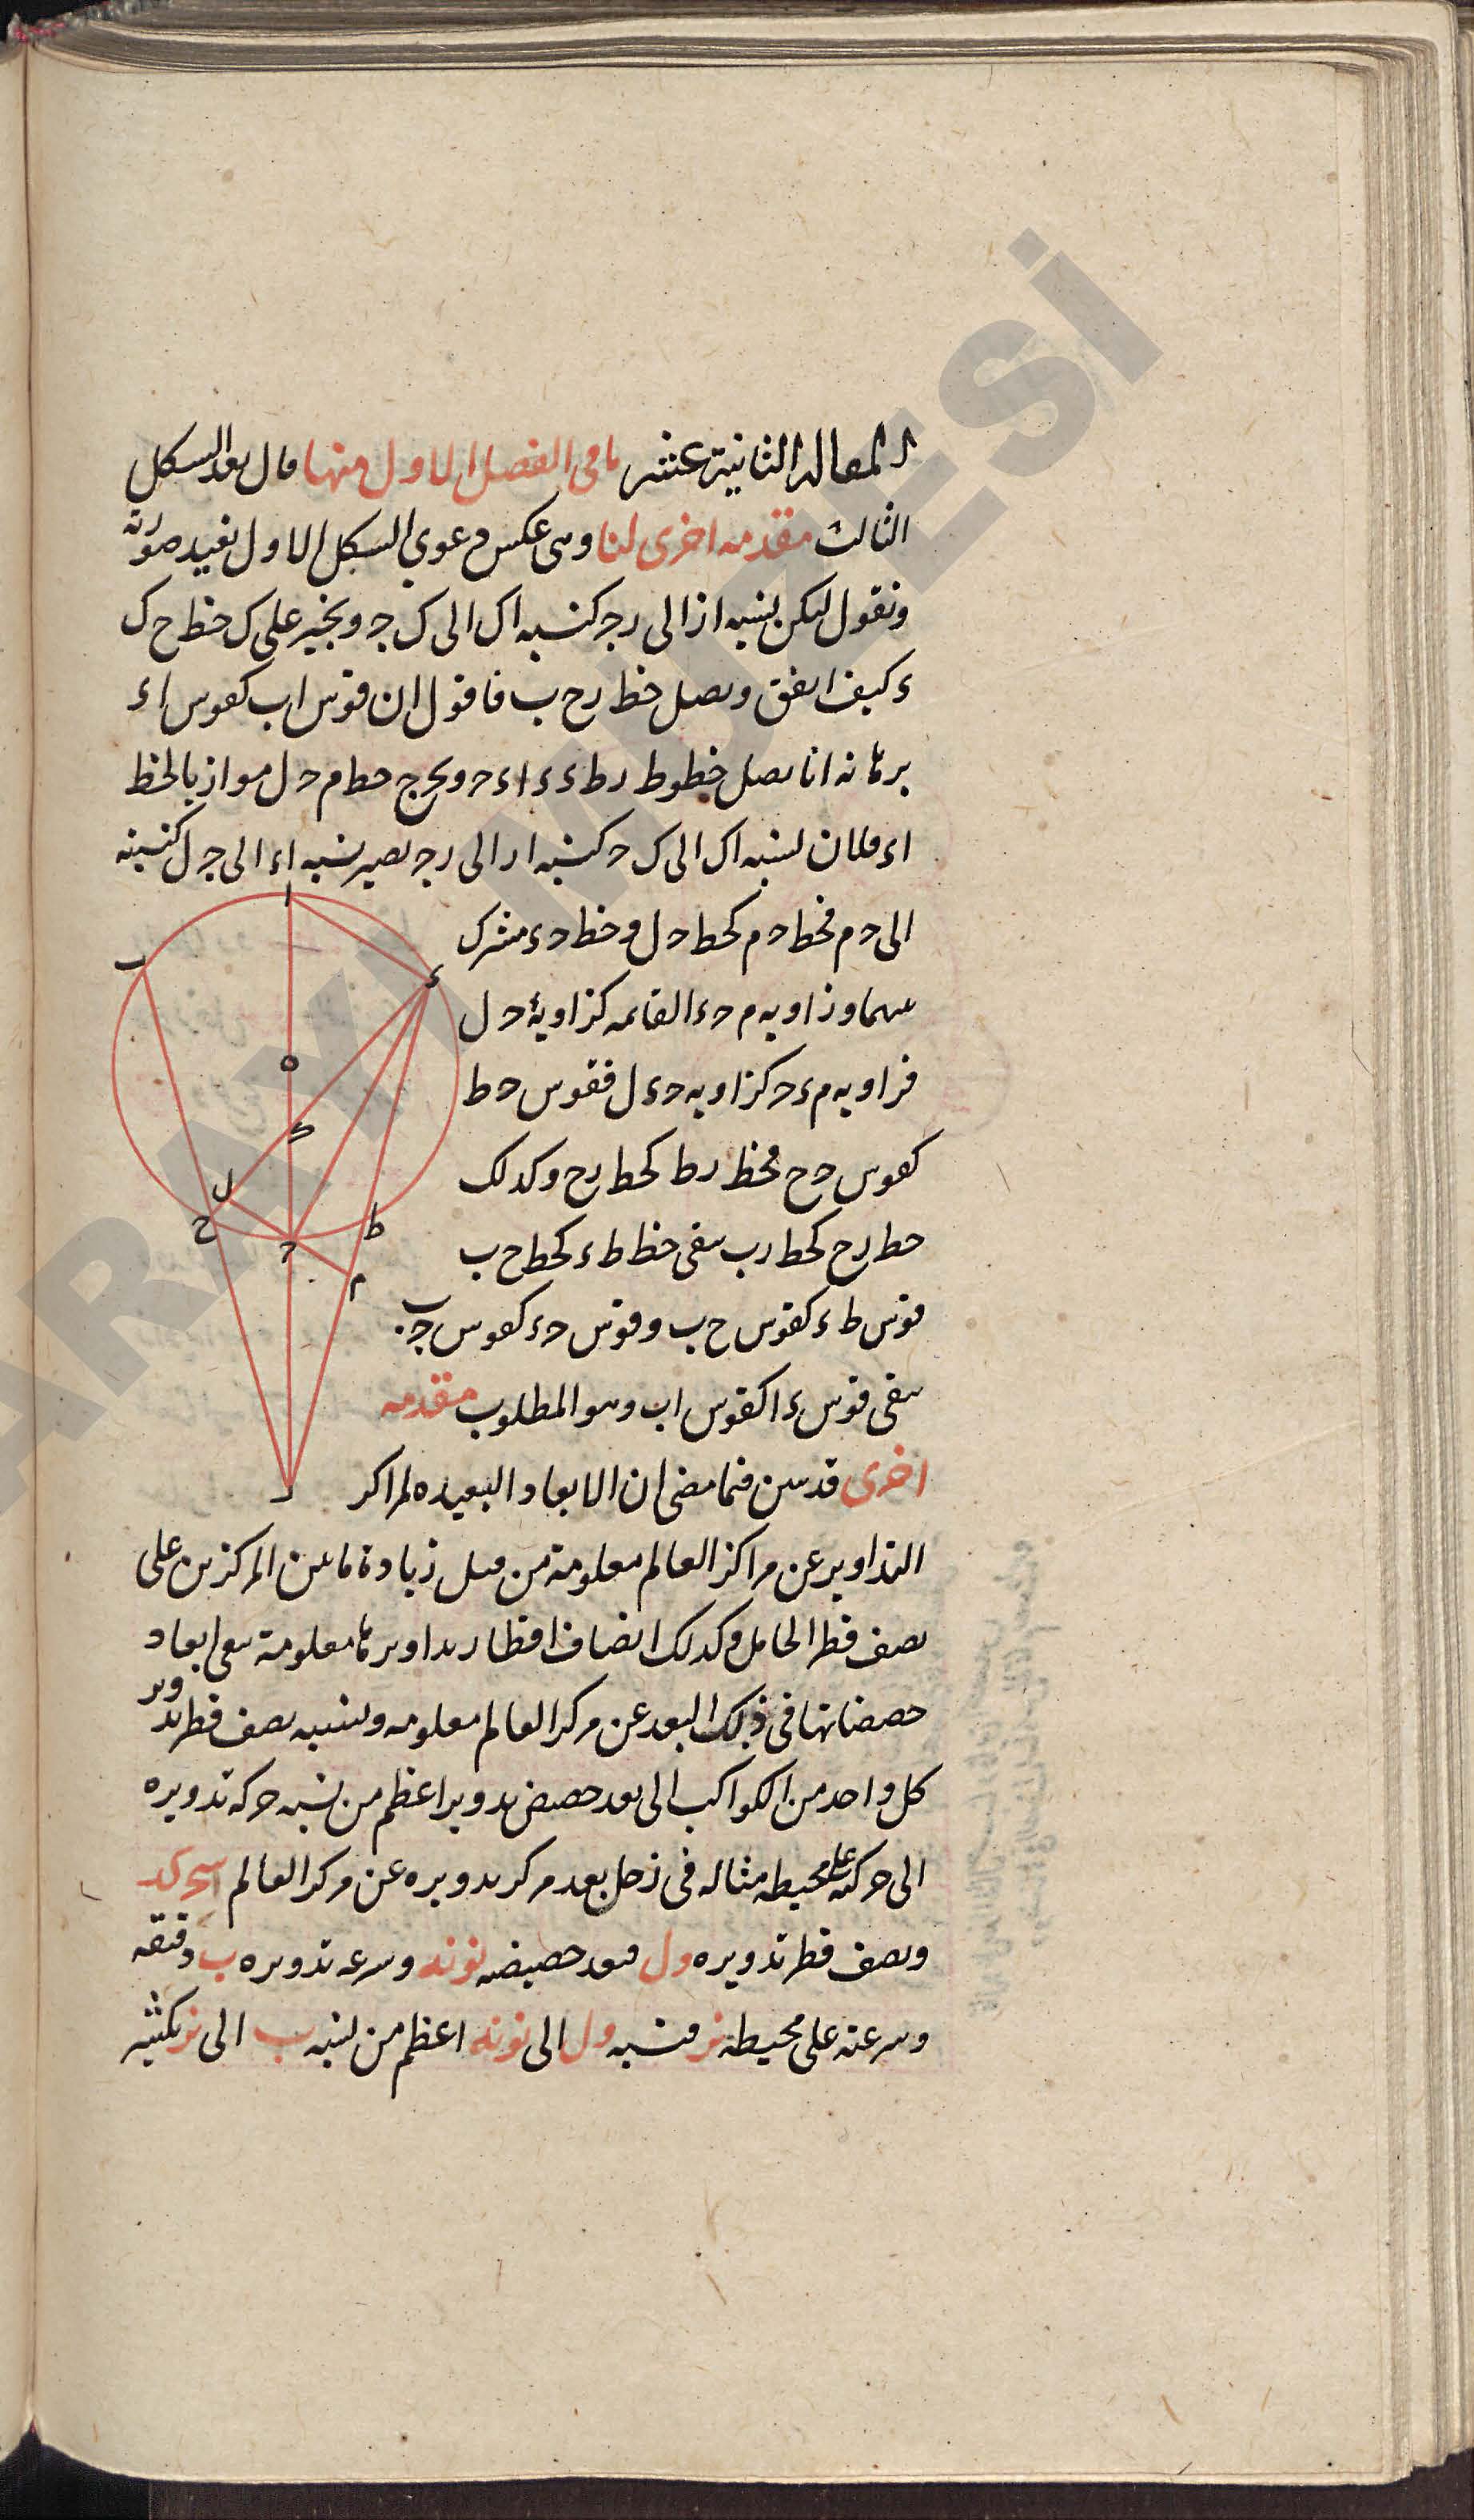 المقاله الثانية عشر مافى الفصل الاول منها قال بعد الشكل
الثالث مقدمه اخرى لنا وهى عكس دعوي الشكل الاول نعيد صورته
ونقول ليكن نسبه از الى رجـ كنسبه اک الى ک جـ ونخير على ک خط ح ک
ء كيف اتفق ونصل خط رح ب فاقول ان قوس اب كقوس اء
برهانه انا نصل خطوط رط ء ء ا ء حـ ونخرج خط م حـ ل موازيا لخط
اء فلان نسبه اک الى ک حـ كنسبه ار الى رجـ تصير نسبه اء الى جـ ل كنسبته
الى حـ م فخط حـ م كخط حـ ل وخط حـ ء مشترک
بينهما وزاويه م حـ ء القائمه كزاوية ء حـ ل
فزاويه م ء حـ كزاويه حـ ء ل فقوس حـ ط
كقوس حـ ح فخط رط كخط رح وكذلک
خط رح كخط رب يبقى خط ط ء كخط ح ب
قوس ط ء كقوس ح ب وقوس حـ ء كقوس جـ ب
يبقى قوس ء ا كقوس اب وهو المطلوب مقدمه
اخرى قد تبين فيما مضى ان الابعاد البعيده لمراكز
التداوير عن مراكز العالم معلومة من قبل زيادة ما بين المركزين على
نصف قطر الحامل وكذلک انصاف اقطار تداويرها معلومة يبقى ابعاد
حضيضاتها فى ذلک البعد عن مركز العالم معلومه ونسبه نصف قطر تدوير
كل واحد من الكواكب الى بعد حضيض تدوير اعظم من نسبه حركه تدويره
الى حركته على محيطه مثاله فى زحل بعد مركز تدويره عن مركز العالم سح كد
ونصف قطر تدويره ول فبعد حضيضه نو ند وسرعه تدويره ب دقيقه
وسرعته على محيطه نز فنسبه ول الى نو ند اعظم من نسبه ب الى نز بكثير
ا
ب
ء
ه
ک
ل
ح
حـ
ط
م
ر
SARAYI MÜZESİ